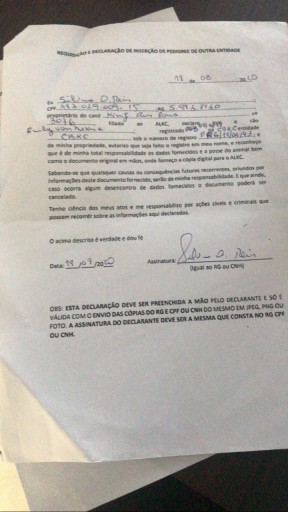 REQUISIÇÃO E DECLARAÇÃO DE INSERÇÃO DE PEDIGREE DE OUTRA ENTIDADE
de 08 de
Eu Silvio O. Reis
CPF RG
proprietário do canil
3076 filiado ao ALKC, declaro que o cão
registrado
CBKC sob o número de registro
de minha propriedade, autorizo que seja feito o registro em meu nome, e reconheço
que é de minha total responsabilidade os dados fornecidos e a posse do animal bem
como o documento original em mãos, onde forneço a cópia digital para o ALKC.
Sabendo-se que quaisquer causas ou consequências futuras recorrentes, oriundos por
informações deste documento fornecido, serão de minha responsabilidade. E que ainda,
caso ocorra algum desencontro de dados fornecidos o documento poderá ser
cancelado.
Tenho ciência dos meus atos e me responsabilizo por ações cíveis e criminais que
possam recorrer sobre as informações aqui declaradas.
O acima descrito é verdade e dou fé
Data: Assinatura: Silvio O. Reis
(Igual ao RG ou CNH)
OBS: ESTA DECLARAÇÃO DEVE SER PREENCHIDA A MÃO PELO DECLARANTE E SÓ É
VÁLIDA COM O ENVIO DAS CÓPIAS DO RG E CPF OU CNH DO MESMO EM JPEG, PNG OU
FOTO. A ASSINATURA DO DECLARANTE DEVE SER A MESMA QUE CONSTA NO RG CPF
OU CNH.